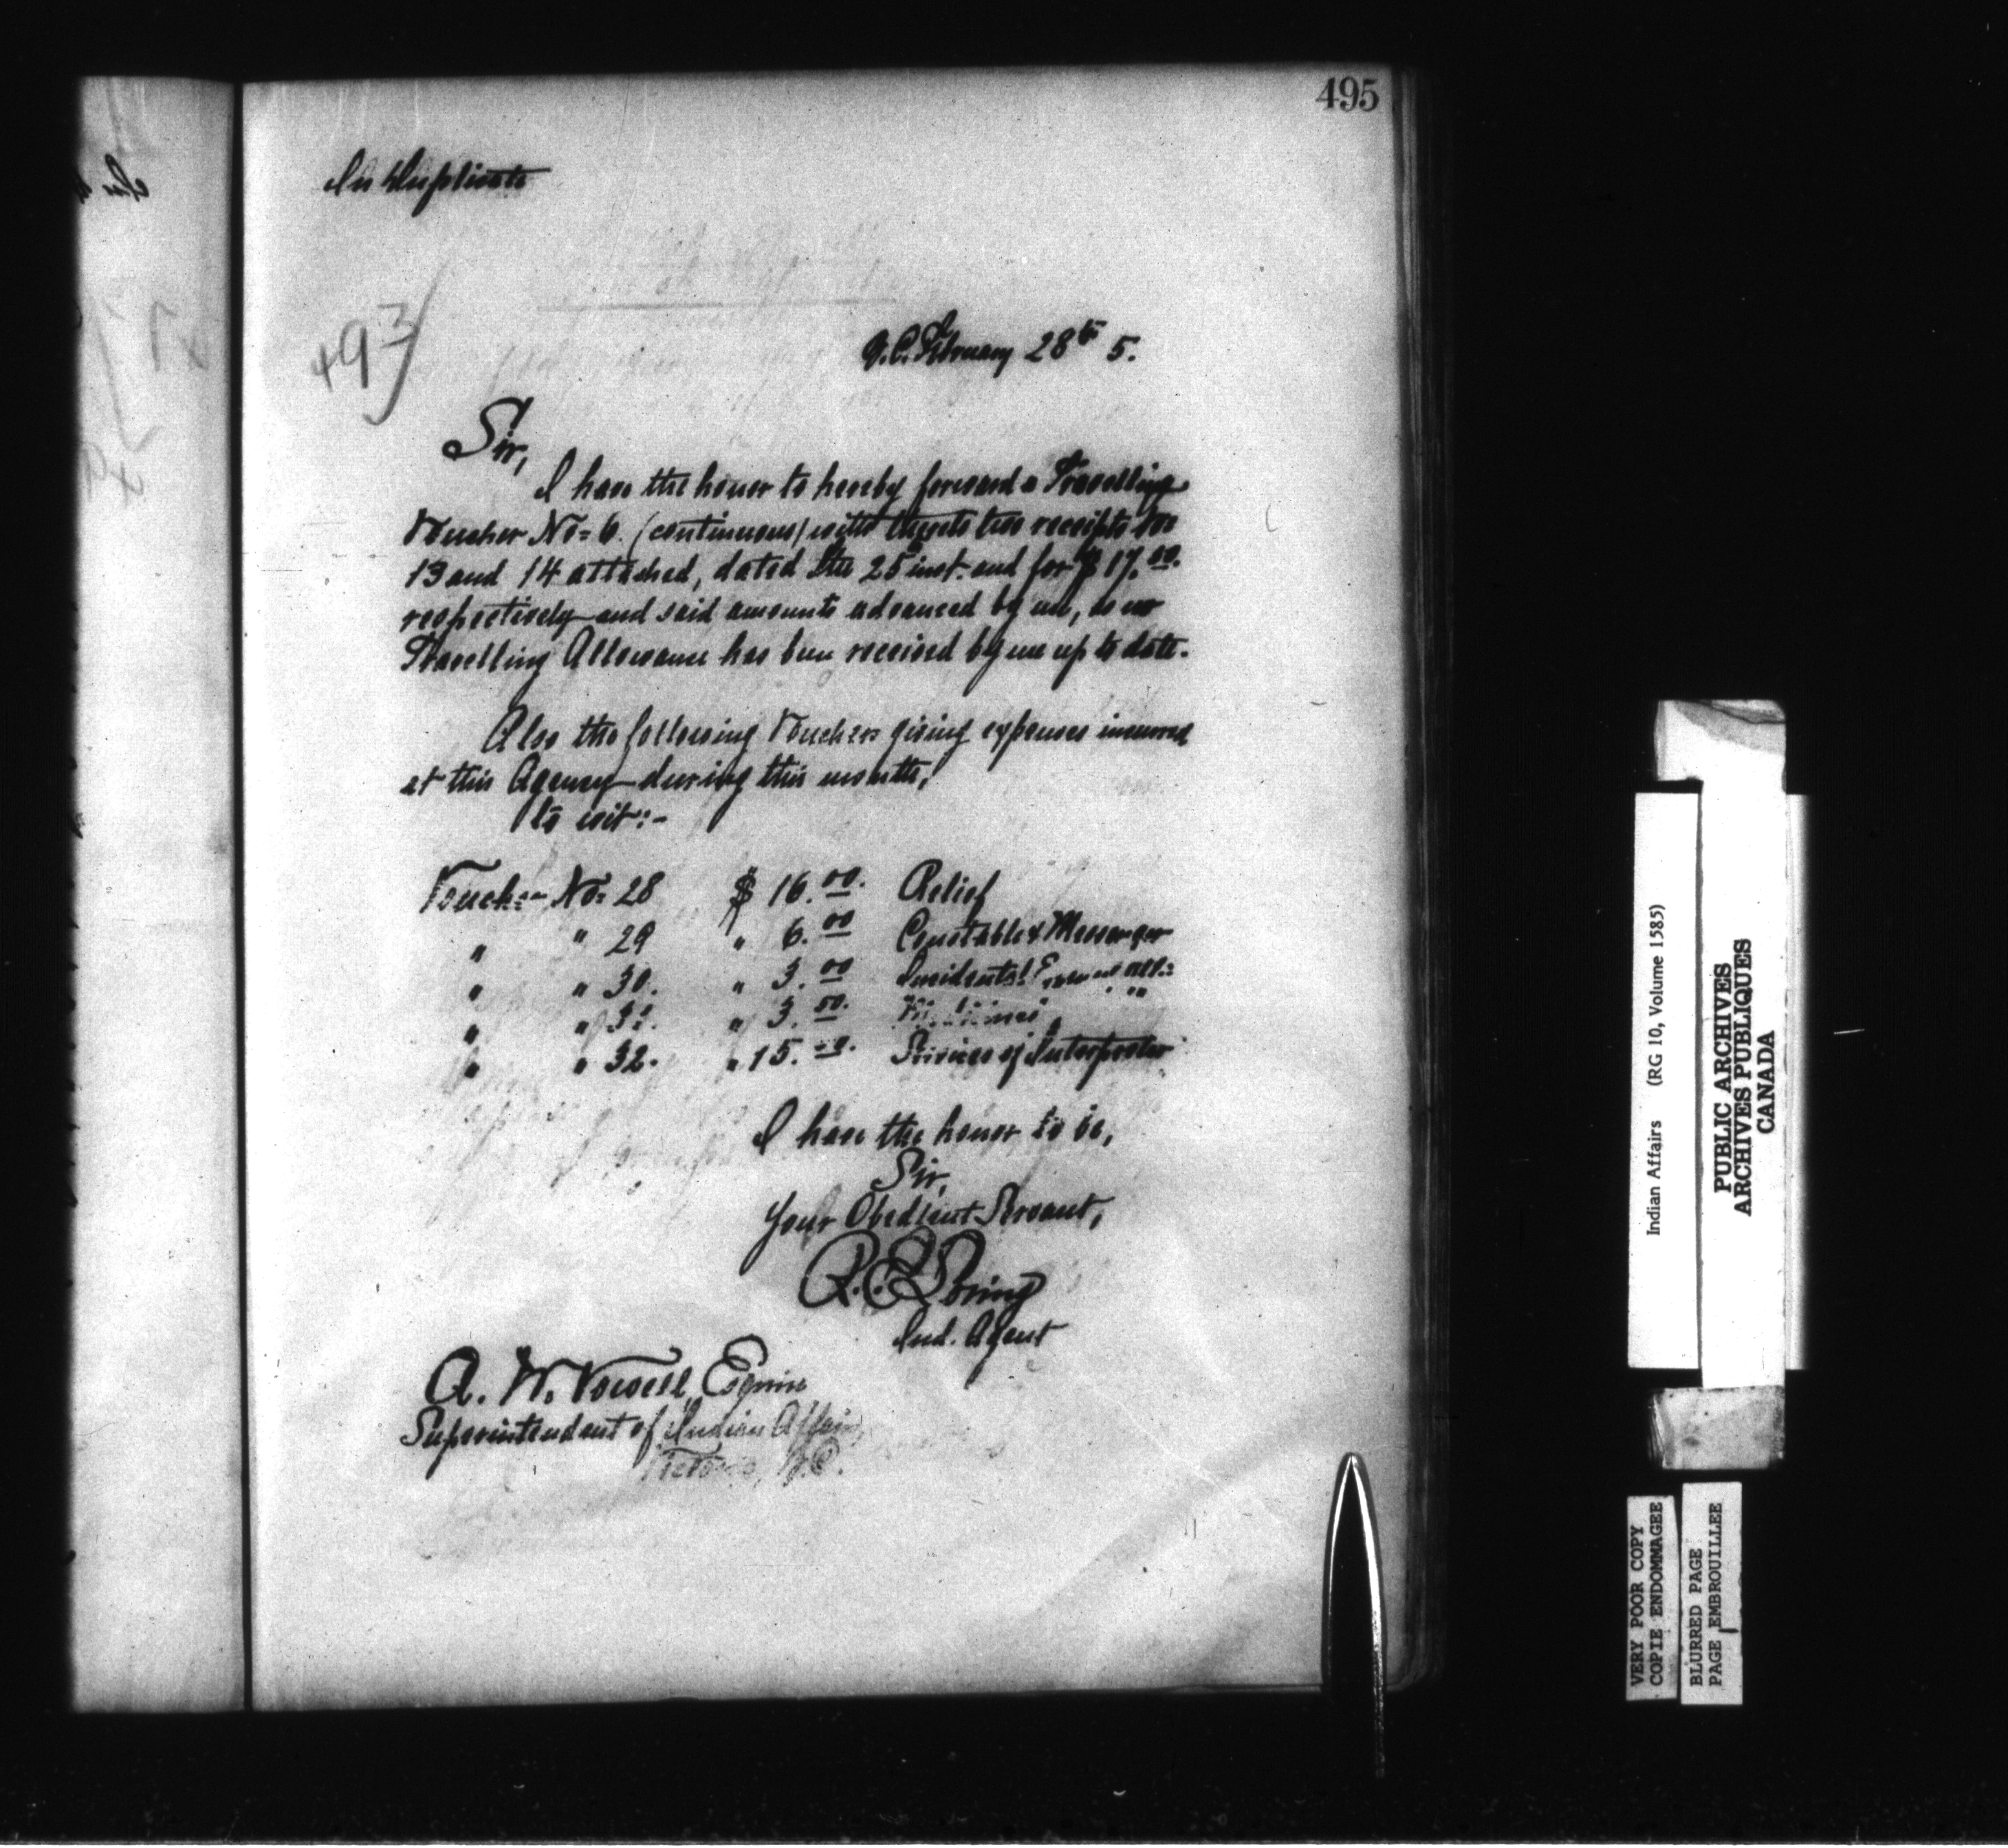 495
In Duplicate
493
B.C. February 28th 5.
Sir,
I have the honor to hereby forward a Travelling
Voucher No= 6. (continuous) with thereto two receipts Nos
13 and 14 attached, dated the 25 inst. and for $17.00.
respectively and said amounts advanced by me, as no
Travelling Allowance has been received by me up to date.
Also the following Vouchers giving expenses incurred
at this Agency during this month,
to wit:-
Voucher No= 28 $ 16.00. Relief
" " 29 " 6.00 Constable & Messenger
" " 30. " 3.00 Incidental
" " 31. " 3.50. Medicines
" " 32. " 15. Services of Interpreter
I have the honor to be,
Sir,
Your Obedient Servant,
R. E. Loring
Ind. Agent
A. W. Vowell, Esquire
Superintendent of Indian Affairs,
Victoria, B.C.
Indian Affairs (RG 10, Volume 1585)
PUBLIC ARCHIVES
ARCHIVES PUBLIQUES
CANADA
VERY POOR COPY
COPIE ENDOMMAGEE
BLURRED PAGE
PAGE EMBROUILLEE